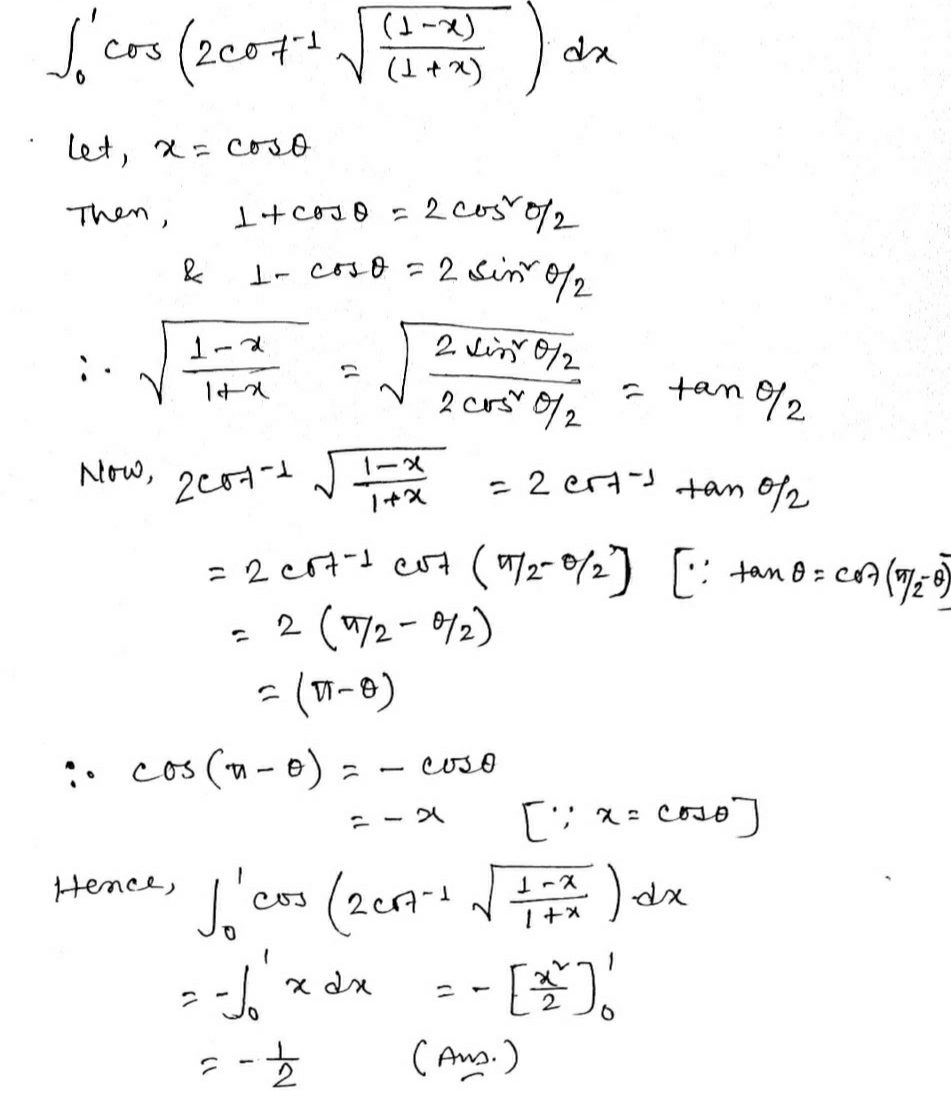 ∫₀¹ cos (2cot⁻¹ √((1-x)/(1+x))) dx
Let, x = cosθ
Then, 1+cosθ = 2cos²θ/2
& 1-cosθ = 2sin²θ/2
∴ √((1-x)/(1+x)) = √((2sin²θ/2)/(2cos²θ/2)) = tan θ/2
Now, 2cot⁻¹ √((1-x)/(1+x)) = 2cot⁻¹ tan θ/2
= 2cot⁻¹ cot (π/2-θ/2] [∵ tanθ = cot(π/2-θ)]
= 2 (π/2-θ/2)
= (π-θ)
∴ cos(π-θ) = - cosθ
= -x [∵ x = cosθ]
Hence, ∫₀¹ cos (2cot⁻¹ √((1-x)/(1+x))) dx
= -∫₀¹ x dx = -[x²/2]₀¹
= -1/2 (Ans.)